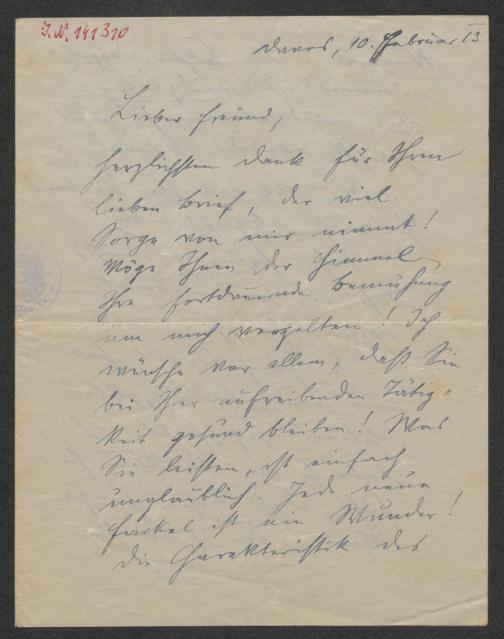 J.N. 141310
Davos, 10. Februar 13
Lieber Freund,
herzlichsten Dank für Ihren
lieben Brief, der viel
Sorge von mir nimmt!
Möge Ihnen der Himmel
Ihre fortdauernde Bemühung
um mich vergelten! Ich
wünsche vor allem, daß Sie
bei Ihrer aufreibenden Tätig-
keit gesund bleiben! Was
Sie leisten, ist einfach
unglaublich. Jede neue
Fackel ist ein Wunder!
Die Charakteristik des